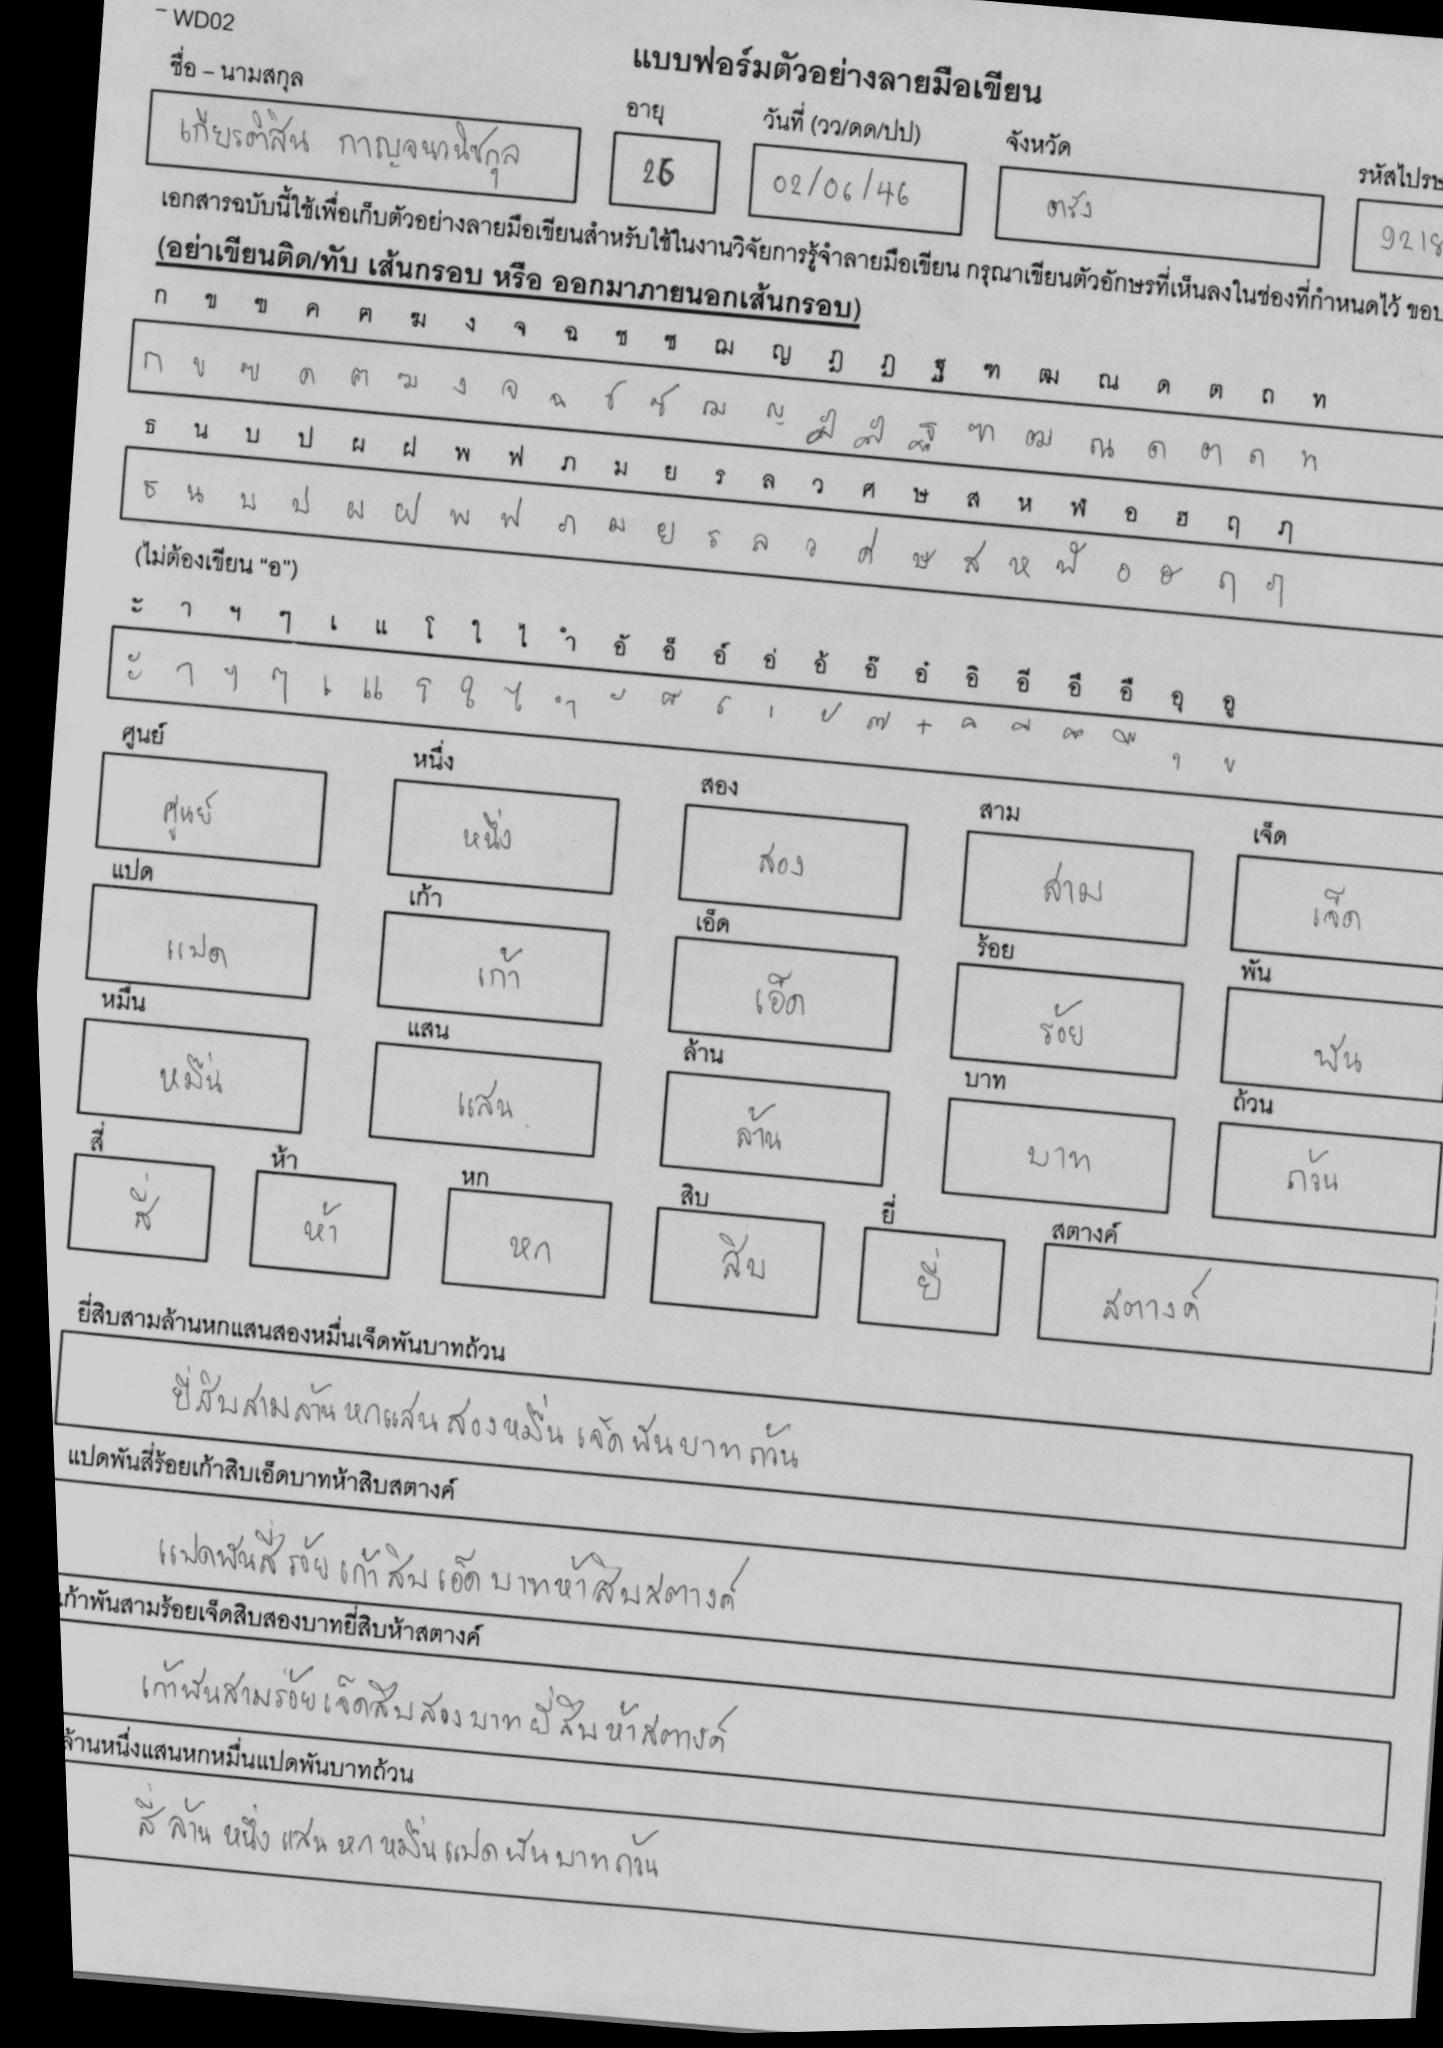 WD02
แบบฟอร์มตัวอย่างลายมือเขียน
ชื่อ – นามสกุล อายุ วันที่ (วว/ดด/ปป) จังหวัด
เกียรติสิน กาญจนวนิชกุล 26 02/06/46 ตรัง
เอกสารฉบับนี้ใช้เพื่อเก็บตัวอย่างลายมือเขียนสำหรับใช้ในงานวิจัยการรู้จำลายมือเขียน กรุณาเขียนตัวอักษรที่เห็นลงในช่องที่กำหนดไว้
(อย่าเขียนติด/ทับ เส้นกรอบ หรือ ออกมาภายนอกเส้นกรอบ)
ก ข ฃ ค ฅ ฆ ง จ ฉ ช ซ ฌ ญ ฎ ฏ ฐ ฑ ฒ ณ ด ต ถ ท
ก ข ฃ ค ฅ ฆ ง จ ฉ ช ซ ฌ ญ ฎ ฏ ฐ ฑ ฒ ณ ด ต ถ ท
ธ น บ ป ผ ฝ พ ฟ ภ ม ย ร ล ว ศ ษ ส ห ฬ อ ฮ ฤ ฦ
ธ น บ ป ผ ฝ พ ฟ ภ ม ย ร ล ว ศ ษ ส ห ฬ อ ฮ ฤ ฦ
(ไม่ต้องเขียน “อ”)
ะ า ฯ ๆ เ แ โ ใ ไ ำ อั อ็ อ์ อ่ อ้ อ๊ อ๋ อิ อี อึ อื อุ อู
ะ า ฯ ๆ เ แ โ ใ ไ ำ ั ็ ์ ่ ้ ๊ ๋ ิ ี ึ ื ุ ู
ศูนย์ หนึ่ง สอง สาม เจ็ด
ศูนย์ หนึ่ง สอง สาม เจ็ด
แปด เก้า เอ็ด ร้อย พัน
แปด เก้า เอ็ด ร้อย พัน
หมื่น แสน ล้าน บาท ถ้วน
หมื่น แสน ล้าน บาท ถ้วน
สี่ ห้า หก สิบ ยี่ สตางค์
สี่ ห้า หก สิบ ยี่ สตางค์
ยี่สิบสามล้านหกแสนสองหมื่นเจ็ดพันบาทถ้วน
ยี่สิบสามล้านหกแสนสองหมื่นเจ็ดพันบาทถ้วน
แปดพันสี่ร้อยเก้าสิบเอ็ดบาทห้าสิบสตางค์
แปดพันสี่ร้อยเก้าสิบเอ็ดบาทห้าสิบสตางค์
เก้าพันสามร้อยเจ็ดสิบสองบาทยี่สิบห้าสตางค์
เก้าพันสามร้อยเจ็ดสิบสองบาทยี่สิบห้าสตางค์
ล้านหนึ่งแสนหกหมื่นแปดพันบาทถ้วน
สี่ล้านหนึ่งแสนหกหมื่นแปดพันบาทถ้วน